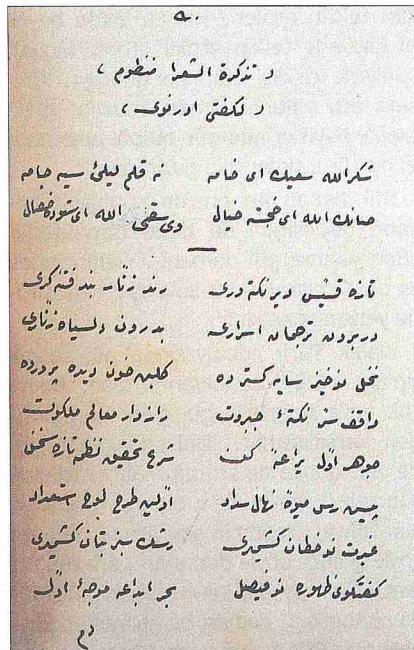 « تذكرة الشعرا منظوم »
« لكفتئ ادرنوى »
شكر الله سعيك اى خامه نه قلم ليلئ سيه جامه
صانك الله اى خجسته خيال وى سخن الله اى ستوده خصال
تازه قسيس دير نكته ورى رند زنار بند فتنه كرى
دربرون ترجمان اسرارى بدرون دلسياه زنارى
نخل نوخيز سايه كسترده كلبن خون ديده پرورده
واقف سر نكتهٔ جبروت رازدار معالم ملكوت
جوهر اول يراعهٔ كن شرع تحقيق نظم تازه سخن
پيش رس ميوهٔ نهال سداد اولين طرح لوح استعداد
غيرت نوخطان كشميرى رشك سبز بتان كشميرى
كفتكوى ظهوره نو فيصل بحر ابداعه موجهٔ اول